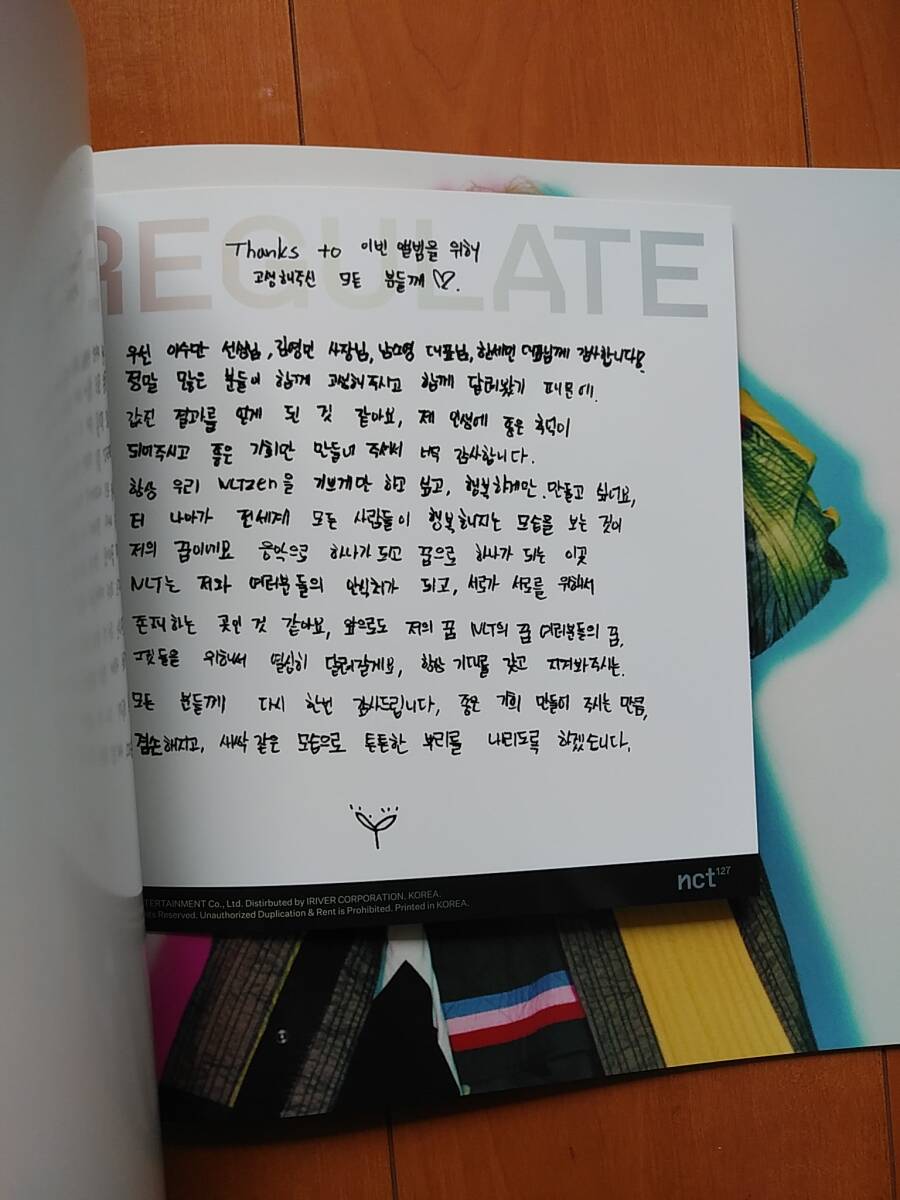 REGULATE
Thanks to 이번 앨범을 위해
고생해주신 모든 분들께 ♡.
우선 이수만 선생님, 김영민 사장님, 남소영 대표님, 한세민 대표님께 감사합니다!
정말 많은 분들이 함께 고생해주시고 함께 달려왔기 때문에.
값진 결과를 얻게 된 것 같아요, 제 인생에 좋은 흙덕이
되어주시고 좋은 기회만 만들어 주셔서 너무 감사합니다.
항상 우리 NCTzen을 기쁘게만 하고 싶고, 행복하게만 만들고 싶어요,
더 나아가 전세계 모든 사람들이 행복해지는 모습을 보는 것이
저의 꿈이에요 음악으로 하나가 되고 꿈으로 하나가 되는 이곳
NCT는 저와 여러분들의 안식처가 되고, 서로가 서로를 위해서
존재하는 곳인 것 같아요, 앞으로도 저의 꿈 NCT의 꿈 여러분들의 꿈,
그것들을 위해서 열심히 달려갈게요, 항상 기대를 갖고 지켜봐주시는.
모든 분들께 다시 한번 감사드립니다, 좋은 기회 만들어 주시는 만큼,
겸손해지고, 새싹 같은 모습으로 튼튼한 뿌리를 내리도록 하겠습니다.
nct 127
TERTAINMENT Co., Ltd. Distirbuted by IRIVER CORPORATION. KOREA.
hts Reserved. Unauthorized Duplication & Rent is Prohibited. Printed in KOREA.